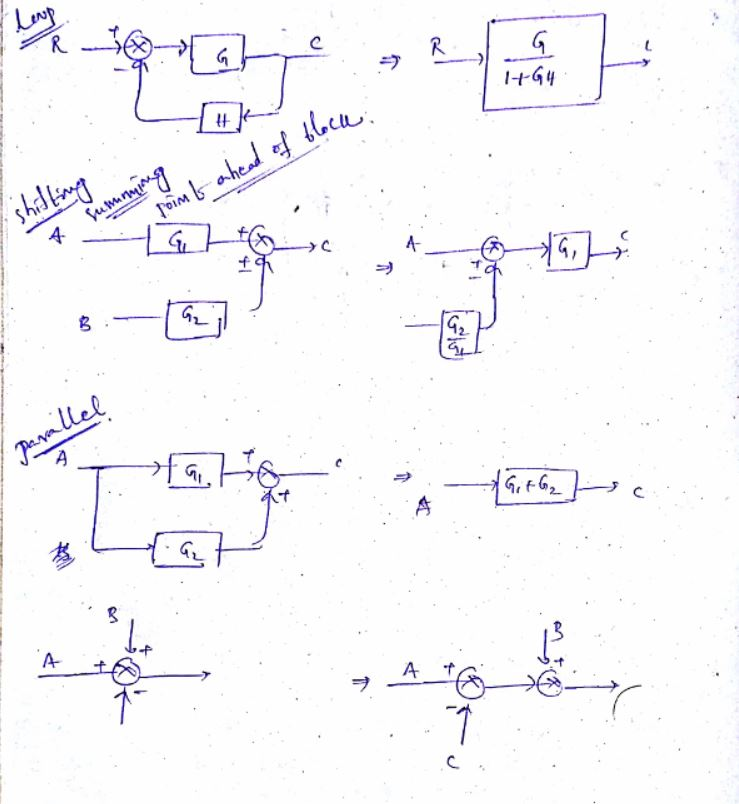 Loop
R + - G C ⇒ R G/1+GH C
H
shifting summing point ahead of block.
A G₁ + ± C ⇒ A ± G₁ C
B G₂ G₂/G₁
parallel.
A G₁ + + C ⇒ A G₁+G₂ C
G₂
B + B +
A + - ⇒ A + -
C